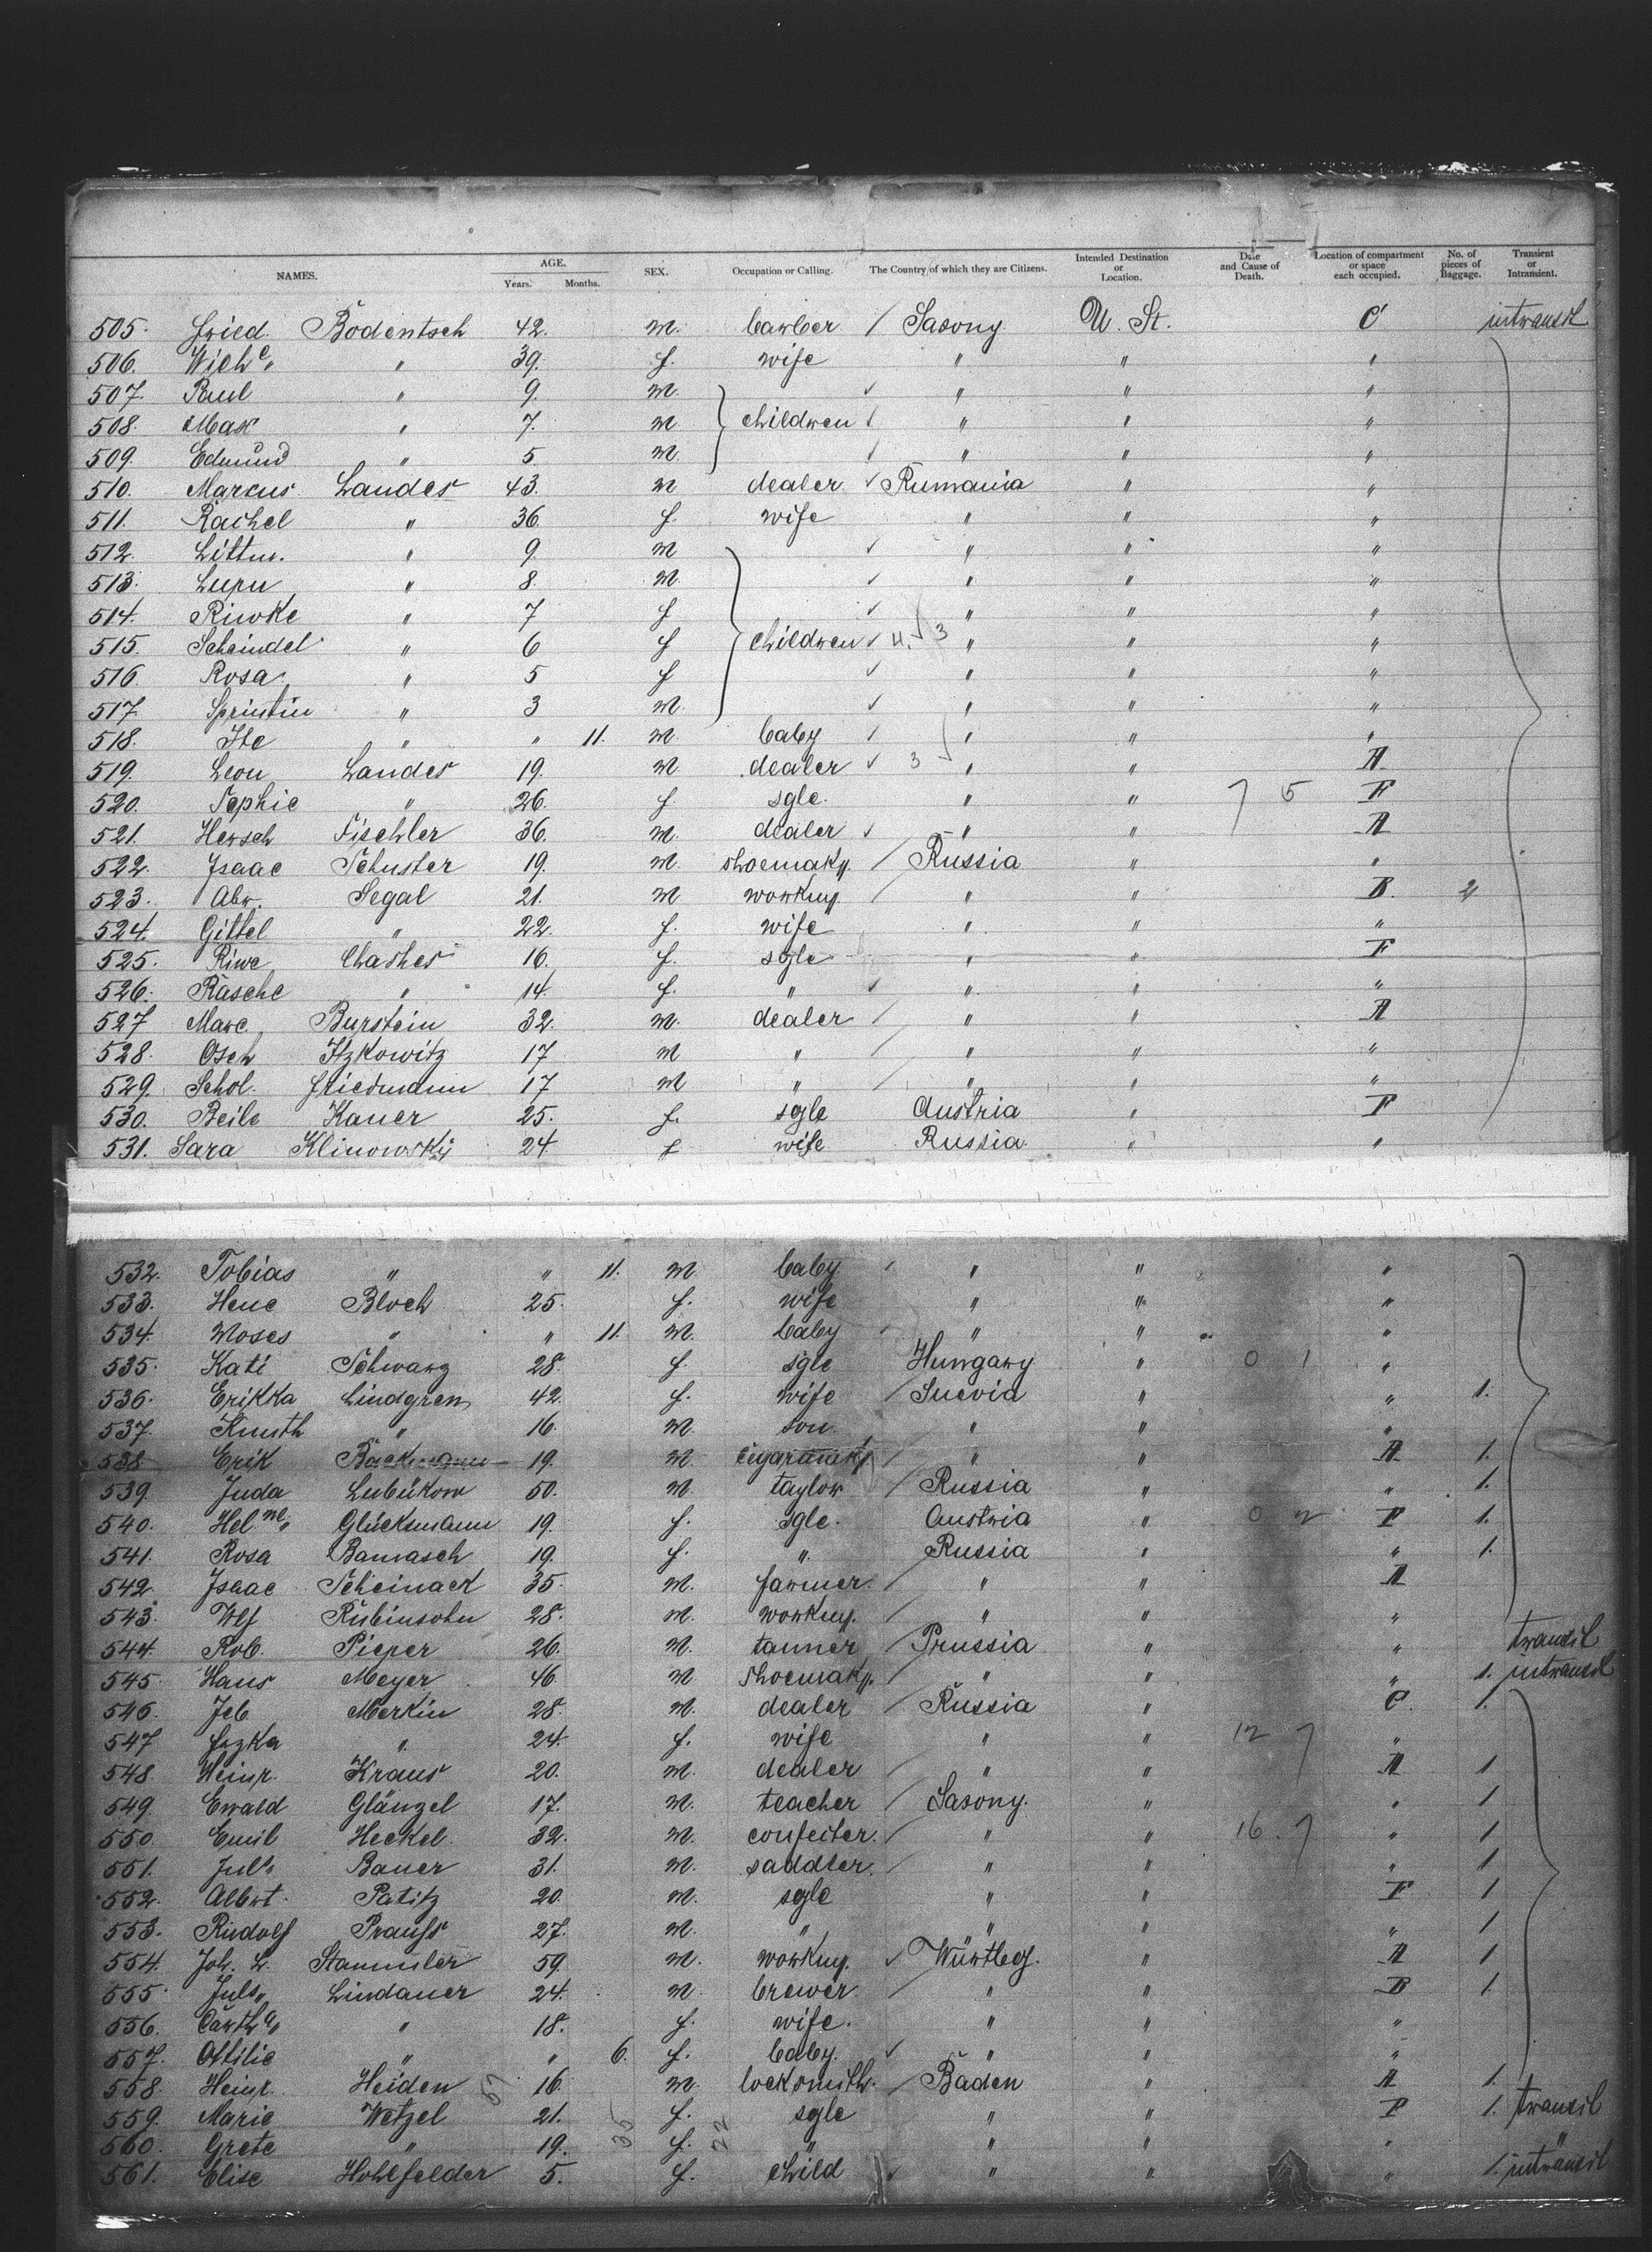 NAMES. AGE. Years. Months. SEX. Occupation or Calling. The Country of which they are Citizens. Intended Destination or Location. Date and Cause of Death. Location of compartment or space each occupied. No. of pieces of Baggage. Transient or Intransient.
505. Fried. Bodentsch 42. m. barber / Saxony U. St. C intransit
506. Wilhe " 39. f. wife " " "
507. Paul " 9. m. ✓ " " "
508. Max " 7. m } children ✓ " " "
509. Edmund " 5. m ✓ " " "
510. Marcus Landes 43. m dealer ✓ Rumania " "
511. Rachel " 36. f. wife " " "
512. Littm. " 9. m ✓ " " "
513. Lupu " 8. m. ✓ " " "
514. Riwke " 7 f ✓ " " "
515. Scheindel " 6 f } children ✓ 4. 3 " " "
516. Rosa " 5 f ✓ " " "
517. Sprintin " 3 m. ✓ " " "
518. Ite " " 11. m. baby ✓ " " "
519. Leon Landes 19. m dealer ✓ 3 " " A
520. Sophie " 26. f sgle. " " 7 5 F
521. Hersch Fischler 36. m. dealer ✓ " " A
522. Isaac Schuster 19. m. shoemakg. / Russia " "
523. Abr. Segal 21. m workmg. / " " B. 2
524. Gittel " 22. f. wife " " "
525. Riwe Chashes 16. f. sgle " " F
526. Rasche " 14. f. " ✓ " " "
527 Marc. Burstein 32. m. dealer / " " A
528. Osch Itzkowitz 17 m " / " " "
529. Schol. Friedmann 17 m " / " " "
530. Beile Kauer 25. f. sgle Austria " F
531. Sara Klinowsky 24 f wife Russia " "
532. Tobias " " 11. m. baby / " " "
533. Hene Bloch 25. f. wife " " "
534. Moses " " 11. m. baby / " " "
535. Kati Schwarz 28. f. sgle Hungary " 0 1 "
536. Erikka Lindgren 42. f. wife / Suevia " " 1.
537. Knuth " 16. m. son " " "
538. Erik Backmann 19. m cigarmakg / " " A 1.
539. Juda Lubükow 50. m. taylor / Russia " " 1.
540. Helme Glücksmann 19. f. sgle. Austria " 0 2 F 1.
541. Rosa Bamasch 19. f. " Russia " " 1.
542. Isaac Scheinack 35. m. farmer. / " " A
543. Wlf Rubinsohn 28. m. workmg. / " " "
544. Rob. Pieper 26. m. tanner / Prussia " " transit
545. Hans Meyer 46. m shoemakg. / " " " 1. intransit
546. Jeb Merkin 28. m. dealer / Russia " C. 1.
547 24. f. wife " " 12 7 "
548. Heinr. Kraus 20. m. dealer / " " A 1
549. Ewald Glänzel 17. m. teacher / Saxony. " " 1
550. Emil Heckel. 32. m. confeiter. / " " 16. 7 " 1
551. Juls. Bauer 31. m. saddler. / " " " 1
552. Albert. Patitz 20. m. sgle " " F 1
553. Rudolf Prauss 27. m. " " " " 1
554. Joh. L. Stammler 59. m. workmg. ✓ Württbg. " A 1
555. Juls. Lindauer 24. m. brewer. / " " B 1.
556. " 18. f. wife. " " "
557. Ottilie " " 6. f. baby. ✓ " " "
558. Heinr. Heiden 16. m. locksmith. / Baden " A 1.
559. Marie Wetzel 21. f. sgle " " F 1. transit
560. Grete " 19. f. " " " " "
561. Elise Hohlfelder 5. f. child ✓ " " " 1. intransit
35 22